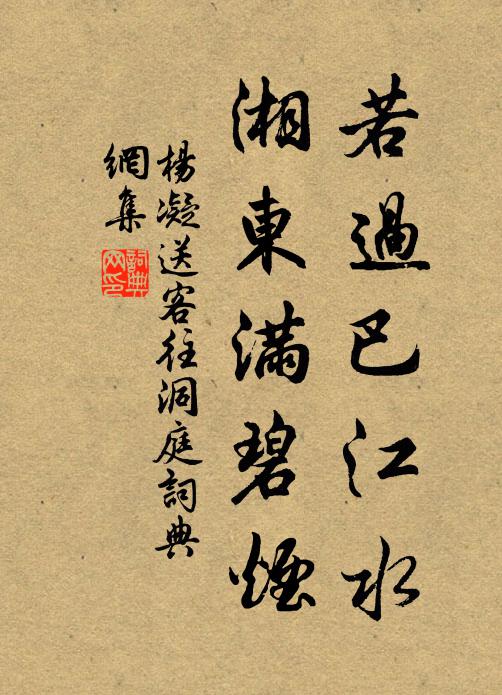 若過巴江水
湘東滿碧煙
楊凝送客往洞庭詞典
網集
詞典
网印